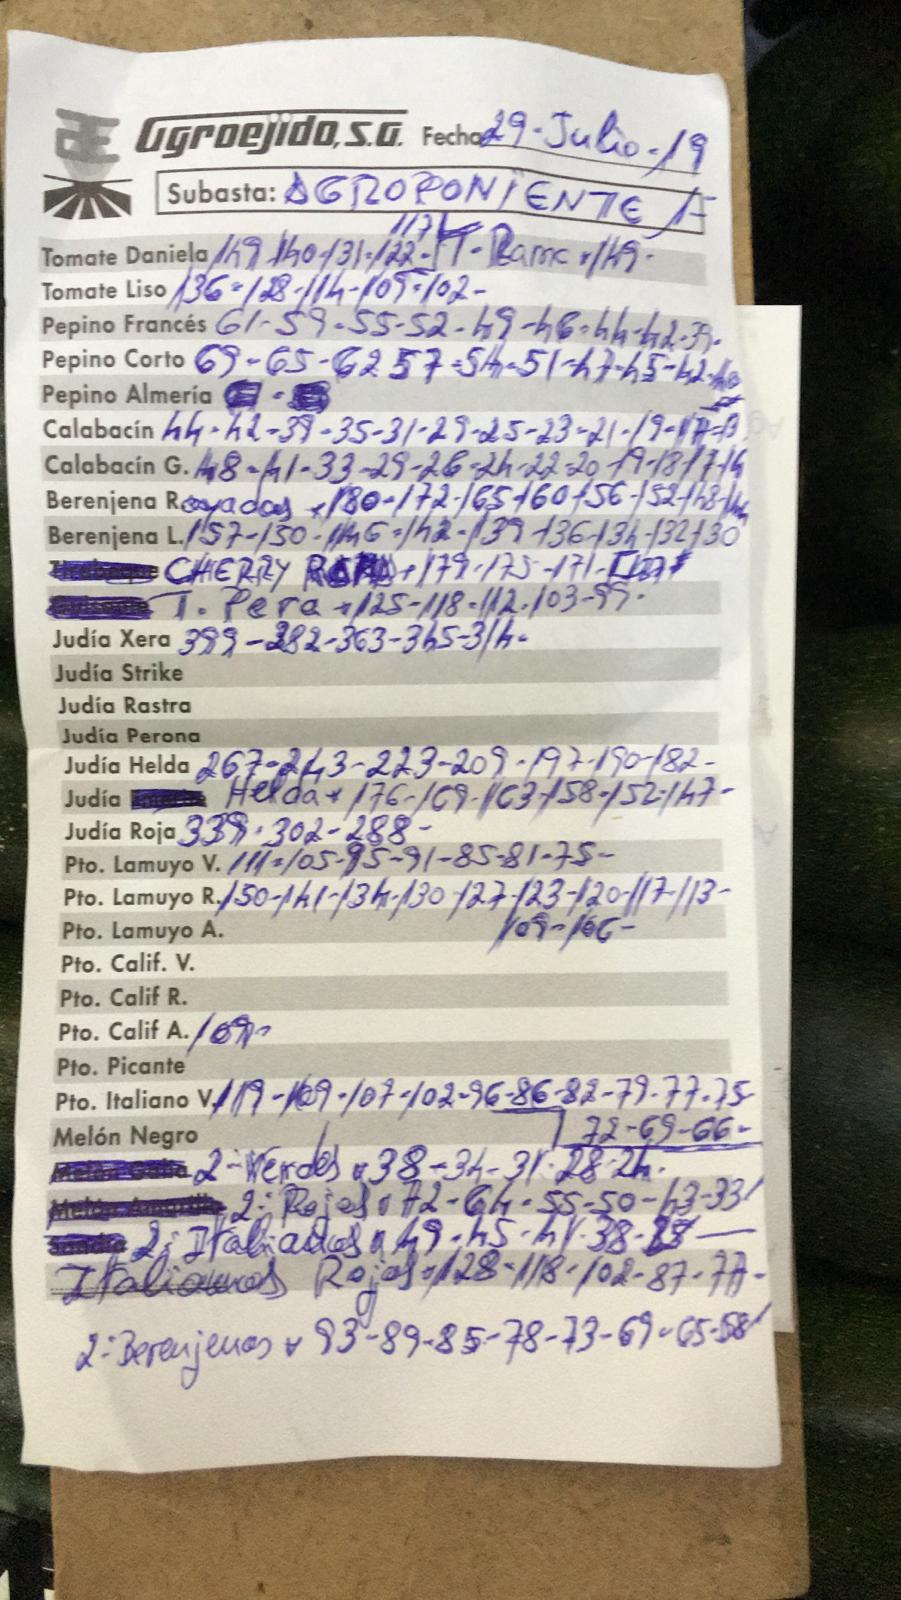 agroejido, s.a. Fecha 29-Julio-19
Subasta: AGROPONIENTE
117
Tomate Daniela 149-140-131-122- 149-
Tomate Liso 136-128-114-109-102-
Pepino Francés 61-59-55-52-49-46-44-42-39-
Pepino Corto 69-65-62 57-54-51-47-45-42-40
Pepino Almería
Calabacín 44-42-39-35-31-29-25-23-21-19-17-13
Calabacín G. 48-41-33-29-26-24-22-20-19-18-17-14
Berenjena Rayadas 180-172-165-160-156-152-148-144
Berenjena L. 157-150-146-142-139-136-134-132-130
CHERRY RAMA 179-175-171-
T. Pera 125-118-112-103-99-
Judía Xera 399-382-363-345-314-
Judía Strike
Judía Rastra
Judía Perona
Judía Helda 267-243-223-209-197-190-182-
Judía Helda 176-169-163-158-152-147-
Judía Roja 339-302-288-
Pto. Lamuyo V. 111-105-95-91-85-81-75-
Pto. Lamuyo R. 150-141-134-130-127-123-120-117-113-
Pto. Lamuyo A. 109-106-
Pto. Calif. V.
Pto. Calif R.
Pto. Calif A. 109-
Pto. Picante
Pto. Italiano V. 119-109-107-102-96-86-82-79-77-75-
Melón Negro 72-69-66-
2: Verdes 38-34-31-28-24-
2: Rojos 72-64-55-50-43-33
2: Italianos 49-45-41-38-28
Italianos Rojos 128-118-102-87-77-
2: Berenjenas 93-89-85-78-73-69-65-58